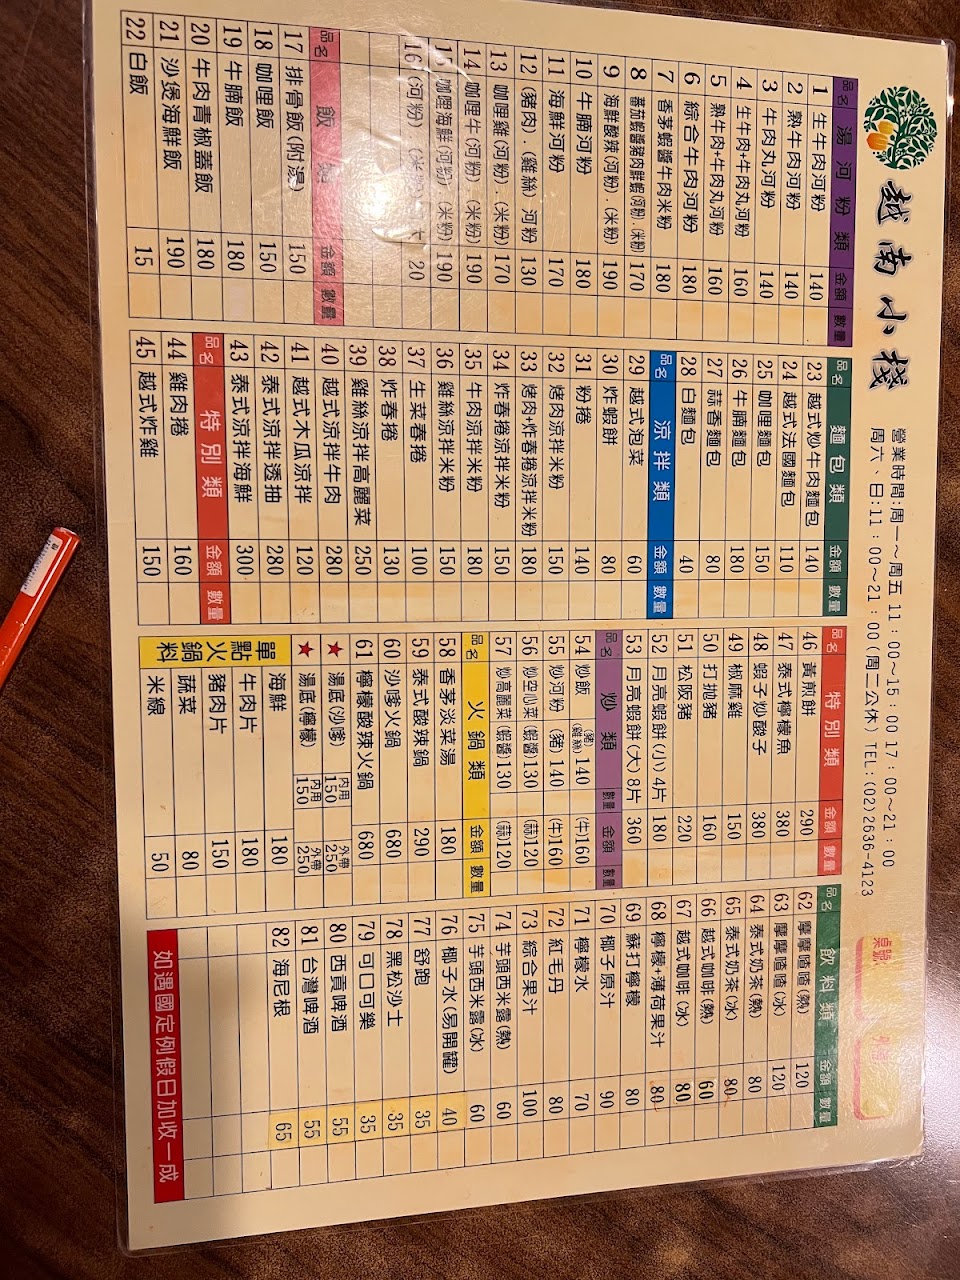 越南小棧
營業時間:周一～周五 11:00～15:00 17:00～21:00
周六、日:11:00～21:00(周二公休) TEL:(02)2636-4123
桌號
品名 湯河粉類 金額 數量
1 生牛肉河粉 140
2 熟牛肉河粉 140
3 牛肉丸河粉 140
4 生牛肉+牛肉丸河粉 160
5 熟牛肉+牛肉丸河粉 160
6 綜合牛肉河粉 180
7 香茅蝦醬牛肉米粉 180
8 蕃茄蝦醬豬肉鮮蝦(河粉)(米粉) 170
9 海鮮酸辣(河粉).(米粉) 190
10 牛腩河粉 180
11 海鮮河粉 170
12 (豬肉).(雞絲)河粉 130
13 咖哩雞(河粉).(米粉) 170
14 咖哩牛(河粉)(米粉) 190
15 咖哩海鮮(河粉)(米粉) 190
16 (河粉) 20
品名 飯類 金額 數量
17 排骨飯(附湯) 150
18 咖哩飯 150
19 牛腩飯 180
20 牛肉青椒蓋飯 180
21 沙煲海鮮飯 190
22 白飯 15
品名 麵包類 金額 數量
23 越式炒牛肉麵包 140
24 越式法國麵包 110
25 咖哩麵包 150
26 牛腩麵包 180
27 蒜香麵包 80
28 白麵包 40
品名 涼拌類 金額 數量
29 越式泡菜 60
30 炸蝦餅 80
31 粉捲 140
32 烤肉涼拌米粉 150
33 烤肉+炸春捲涼拌米粉 180
34 炸春捲涼拌米粉 150
35 牛肉涼拌米粉 180
36 雞絲涼拌米粉 150
37 生菜春捲 100
38 炸春捲 130
39 雞絲涼拌高麗菜 250
40 越式涼拌牛肉 280
41 越式木瓜涼拌 120
42 泰式涼拌透抽 280
43 泰式涼拌海鮮 300
品名 特別類 金額 數量
44 雞肉捲 160
45 越式炸雞 150
品名 特別類 金額 數量
46 黃煎餅 290
47 泰式檸檬魚 380
48 蝦子炒酸子 380
49 椒麻雞 150
50 打拋豬 160
51 松阪豬 220
52 月亮蝦餅(小)4片 180
53 月亮蝦餅(大)8片 360
品名 炒類 數量 金額 數量
54 炒飯 (豬)(雞絲)140 (牛)160
55 炒河粉 (豬)140 (牛)160
56 炒空心菜(蝦醬)130 (蒜)120
57 炒高麗菜(蝦醬)130 (蒜)120
品名 火鍋類 金額 數量
58 香茅淡菜湯 180
59 泰式酸辣鍋 290
60 沙嗲火鍋 680
61 檸檬酸辣火鍋 680
★ 湯底(沙嗲) 內用150 外帶250
★ 湯底(檸檬) 內用150 外帶250
單點火鍋料
海鮮 180
牛肉片 180
豬肉片 150
蔬菜 80
米線 50
品名 飲料類 金額 數量
62 摩摩喳喳(熱) 120
63 摩摩喳喳(冰) 120
64 泰式奶茶(熱) 80
65 泰式奶茶(冰) 80
66 越式咖啡(熱) 60
67 越式咖啡(冰) 80
68 檸檬+薄荷果汁 80
69 蘇打檸檬 80
70 椰子原汁 90
71 檸檬水 70
72 紅毛丹 80
73 綜合果汁 100
74 芋頭西米露(熱) 60
75 芋頭西米露(冰) 60
76 椰子水(易開罐) 40
77 舒跑 35
78 黑松沙士 35
79 可口可樂 35
80 西貢啤酒 55
81 台灣啤酒 55
82 海尼根 65
如遇國定例假日加收一成